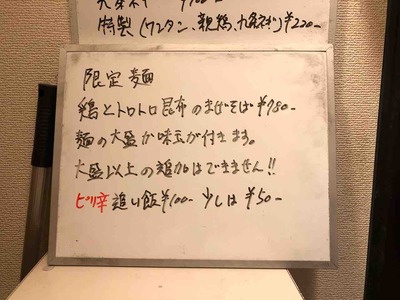 特製(ワンタン、親鶏、九条ネギ)¥220-
限定麺
鶏とトロトロ昆布のまぜそば¥780-
麺の大盛か味玉が付きます。
大盛以上の追加はできません!!
ピリ辛追い飯¥100- 少しは¥50-